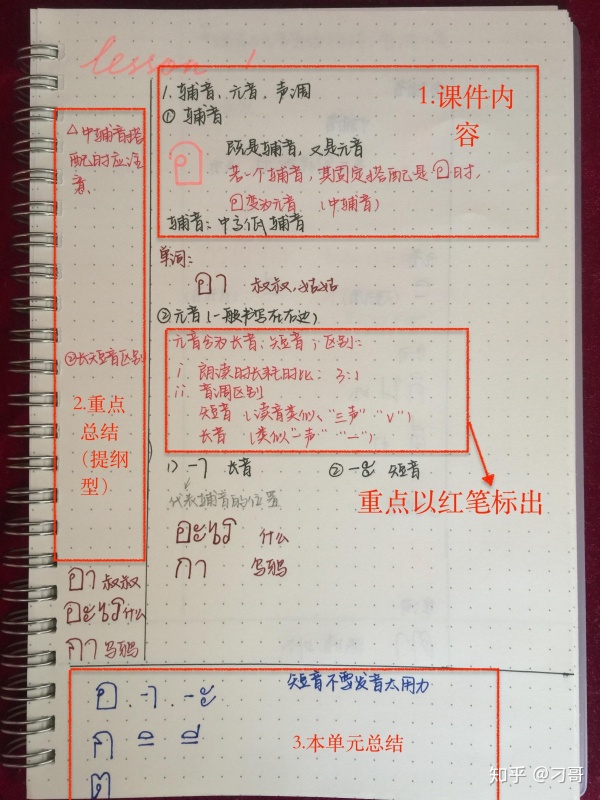 lesson 1
1.课件内
容
1. 辅音、元音、声调
① 辅音
既是辅音，又是元音
อ
某一个辅音，其固定搭配是อ时，
อ变为元音 （中辅音）
辅音：中高低辅音
单词：
อา 叔叔,姑姑
②元音（一般书写在右边）
元音分为长音、短音；区别：
i. 朗读的长耗时比：3:1
ii. 音调区别
短音（读音类似、"三声" "ˇ"）
长音（类似"一声" "一"）
1) -า 长音
② -ะ 短音
代表辅音的位置
อะไร 什么
กา 乌鸦
重点以红笔标出
△中辅音搭
配时应注
意、
②长短音区别
2.重点
总结
（提纲
型）
อา 叔叔
อะไร 什么
กา 乌鸦
短音不要发音太用力
อ -า -ะ
ก
ต
3.本单元总结
知乎 @刁哥